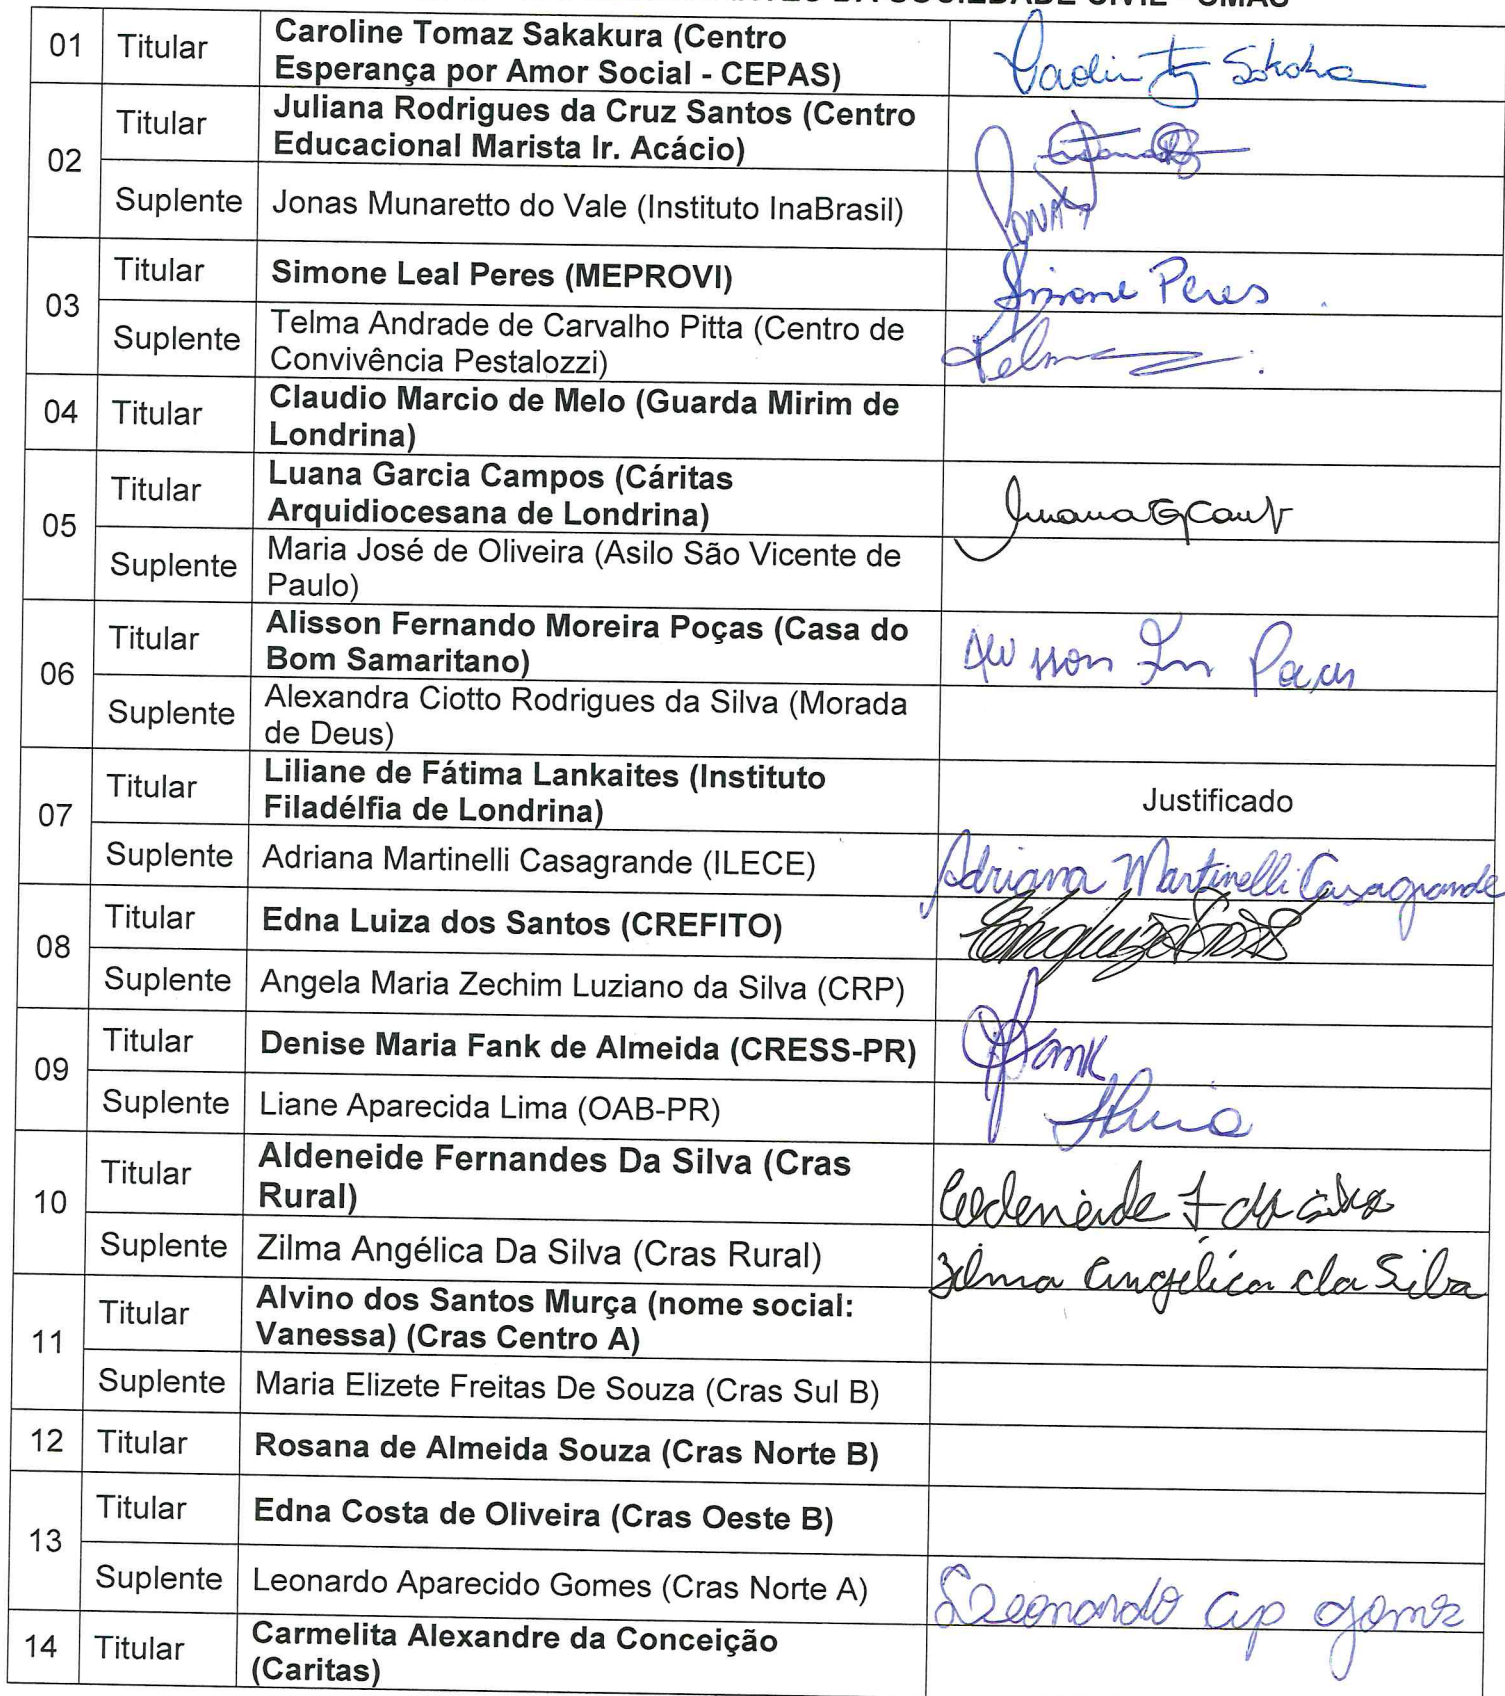 DA SOCIEDADE CIVIL - CMAS
01 Titular Caroline Tomaz Sakakura (Centro
Esperança por Amor Social - CEPAS)
02 Titular Juliana Rodrigues da Cruz Santos (Centro
Educacional Marista Ir. Acácio)
Suplente Jonas Munaretto do Vale (Instituto InaBrasil)
03 Titular Simone Leal Peres (MEPROVI) Simone Peres
Suplente Telma Andrade de Carvalho Pitta (Centro de
Convivência Pestalozzi) Telm
04 Titular Claudio Marcio de Melo (Guarda Mirim de
Londrina)
05 Titular Luana Garcia Campos (Cáritas
Arquidiocesana de Londrina) Luana G
Suplente Maria José de Oliveira (Asilo São Vicente de
Paulo)
06 Titular Alisson Fernando Moreira Poças (Casa do
Bom Samaritano) Alisson
Suplente Alexandra Ciotto Rodrigues da Silva (Morada
de Deus)
07 Titular Liliane de Fátima Lankaites (Instituto
Filadélfia de Londrina) Justificado
Suplente Adriana Martinelli Casagrande (ILECE) Adriana Martinelli Casagrande
08 Titular Edna Luiza dos Santos (CREFITO)
Suplente Angela Maria Zechim Luziano da Silva (CRP)
09 Titular Denise Maria Fank de Almeida (CRESS-PR) Fank
Suplente Liane Aparecida Lima (OAB-PR)
10 Titular Aldeneide Fernandes Da Silva (Cras
Rural) Aldeneide F da silva
Suplente Zilma Angélica Da Silva (Cras Rural) Zilma Angélica da Silva
11 Titular Alvino dos Santos Murça (nome social:
Vanessa) (Cras Centro A)
Suplente Maria Elizete Freitas De Souza (Cras Sul B)
12 Titular Rosana de Almeida Souza (Cras Norte B)
13 Titular Edna Costa de Oliveira (Cras Oeste B)
Suplente Leonardo Aparecido Gomes (Cras Norte A) Leonardo Ap gomes
14 Titular Carmelita Alexandre da Conceição
(Caritas)